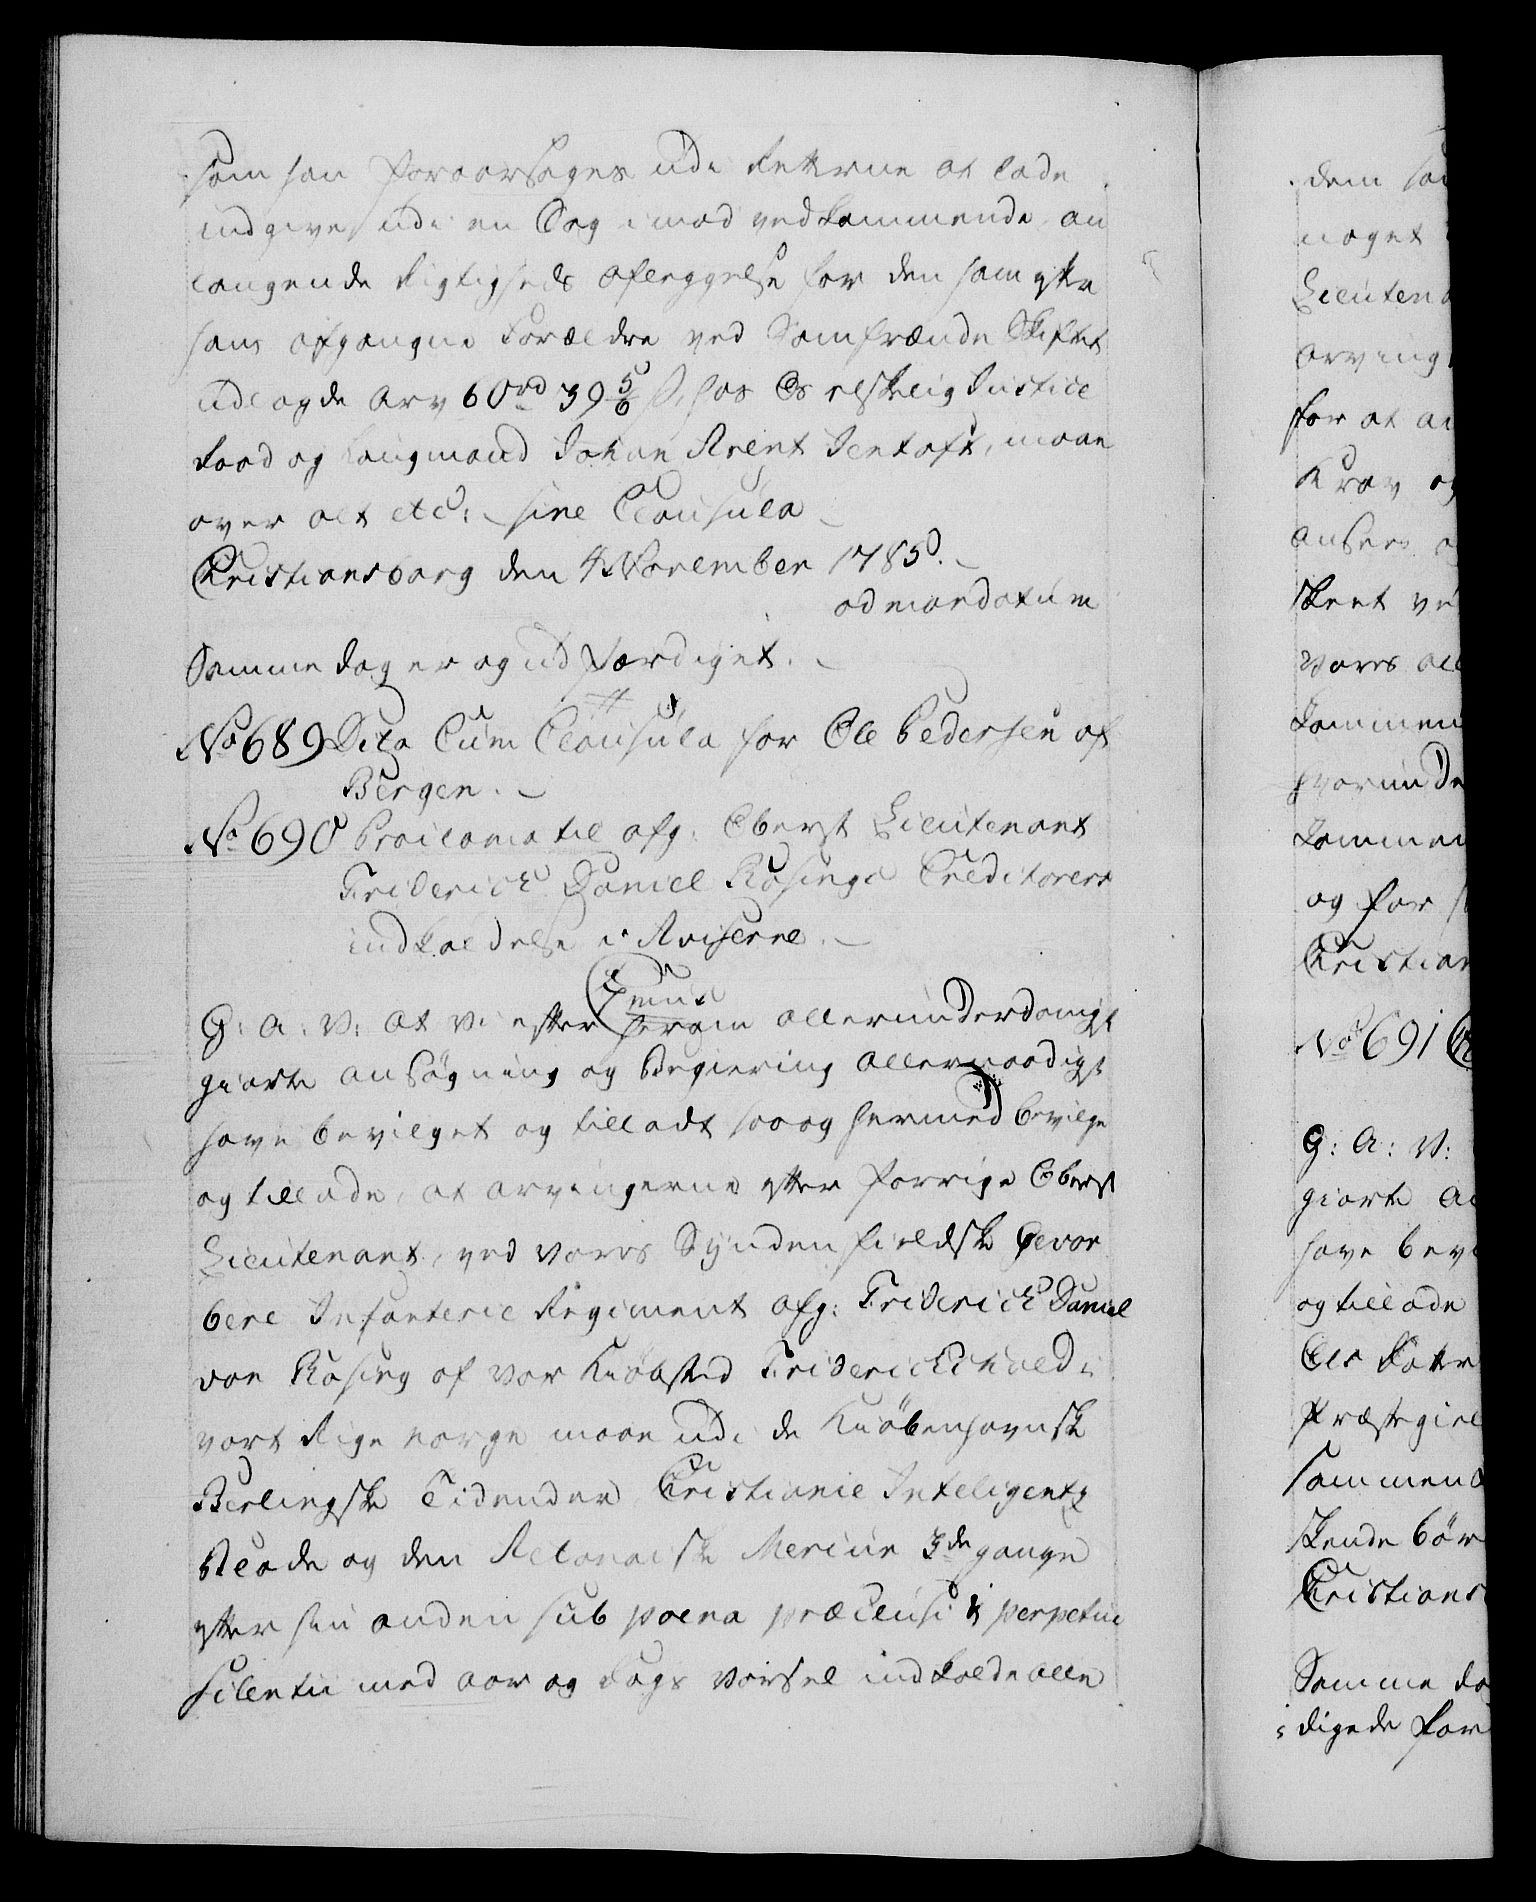 som han foraarsages udi Retterne at lade
indgive udi en Sag imod vedkommende, an
langende Rigtigheds aflæggelse for den ham efter
hans afgangne Forældre ved Samfrænde Skiftet
udlagde Arv 60 rd 39 5/6 s, hos Os elskelig Justice
Raad og Laugmand Johan Arent Tentoft, maae
over alt etc: sine Clausula
Christiansborg den 4 November 1785.
ad mandatum
Samme dag er og udfærdiget.
No 689 Dito Cum Clausula for Ole Pedersen af
Bergen.
No 690 Proclama til afg: Oberst Lieutenant
Friderich Daniel Rosings Creditorers
indkaldelse i Aviserne.
G: A: V: at Vi efter herom allerunderdanigst
giorte ansøgning og Begiering allernaadigst
have bevilget og tilladt saa og hermed bevilge
og tillade, at arvingerne efter forrige Oberst
Lieutenant, ved vores Syndenfieldske Gevor
bene Infanterie Regiment afg: Friderich Daniel
von Rosing af vor Kiøbsted Friderichshald i
vort Rige Norge maae udi de Kiøbenhavnske
Berlingske Tidender Christianie Inteligentz
Blade og den Altonaiske Mercur 3de gange
efter hin anden sub poena præclusi & perpetui
silentii med aar og dags Varsel indkalde alle
dem som
noget
Lieutena
arving
for at an
Krav og
ansees
skeet ve
Vores all
kommen
hvorunde
kommen
og for
Christian
No 691
G: A: V:
giorte an
have bevi
og tillade
Ole
Præstegiel
sammen
skende bør
Christians
Samme da
digede for